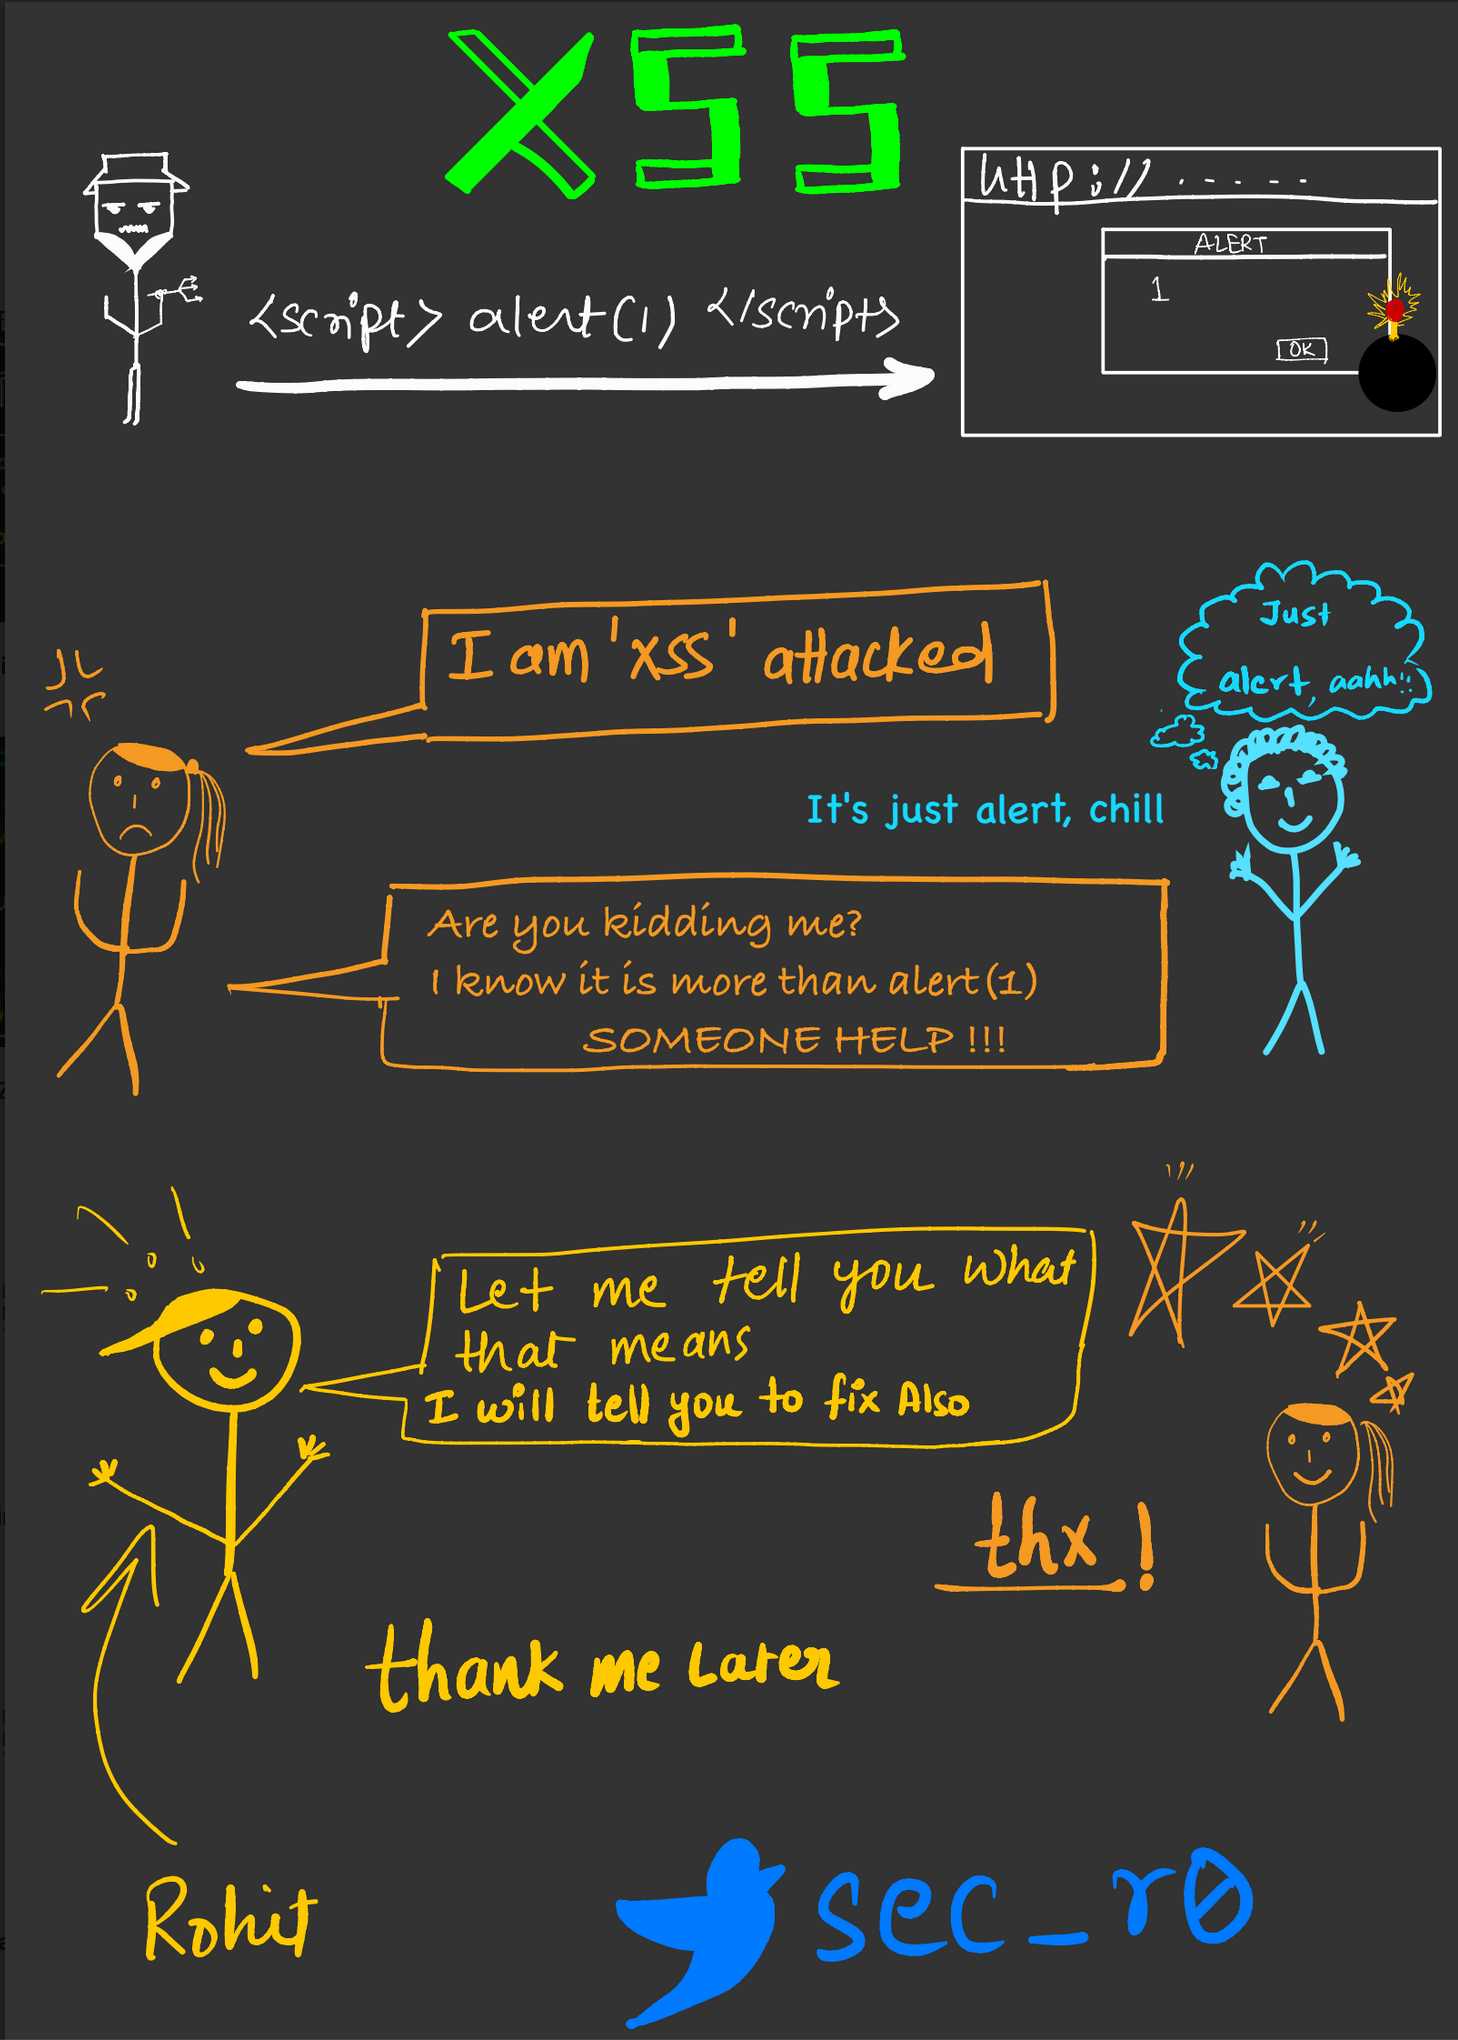 XSS
http://.----
ALERT
1
OK
<script> alert(1) </script>
I am 'XSS' attacked
Just
alert, aahh!!
It's just alert, chill
Are you kidding me?
I know it is more than alert(1)
SOMEONE HELP !!!
Let me tell you what
that means
I will tell you to fix Also
thx!
thank me Later
Rohit
sec_r0